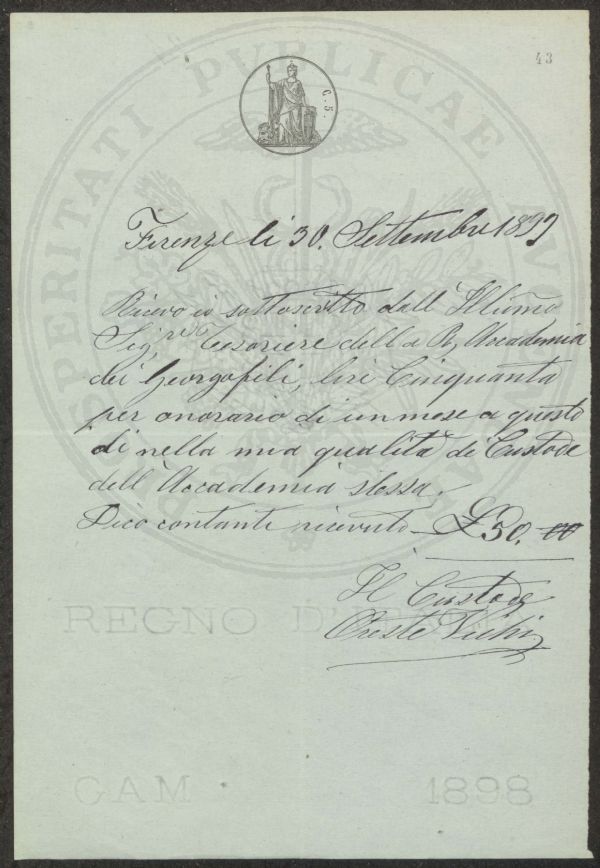 43
C. 5.
PROSPERITATI PUBLICAE
Firenze li 30. Settembre 1899
Ricevo io sottoscritto dall' Illumo
Sig.re Tesoriere della R. Accademia
dei Georgofili, lire Cinquanta
per onorario di un mese a questo
dì nella mia qualità di Custode
dell' Accademia stessa.
Dico contanti ricevuto £50. 00
Il Custode
Oreste Vichi
REGNO D'
CAM 1898